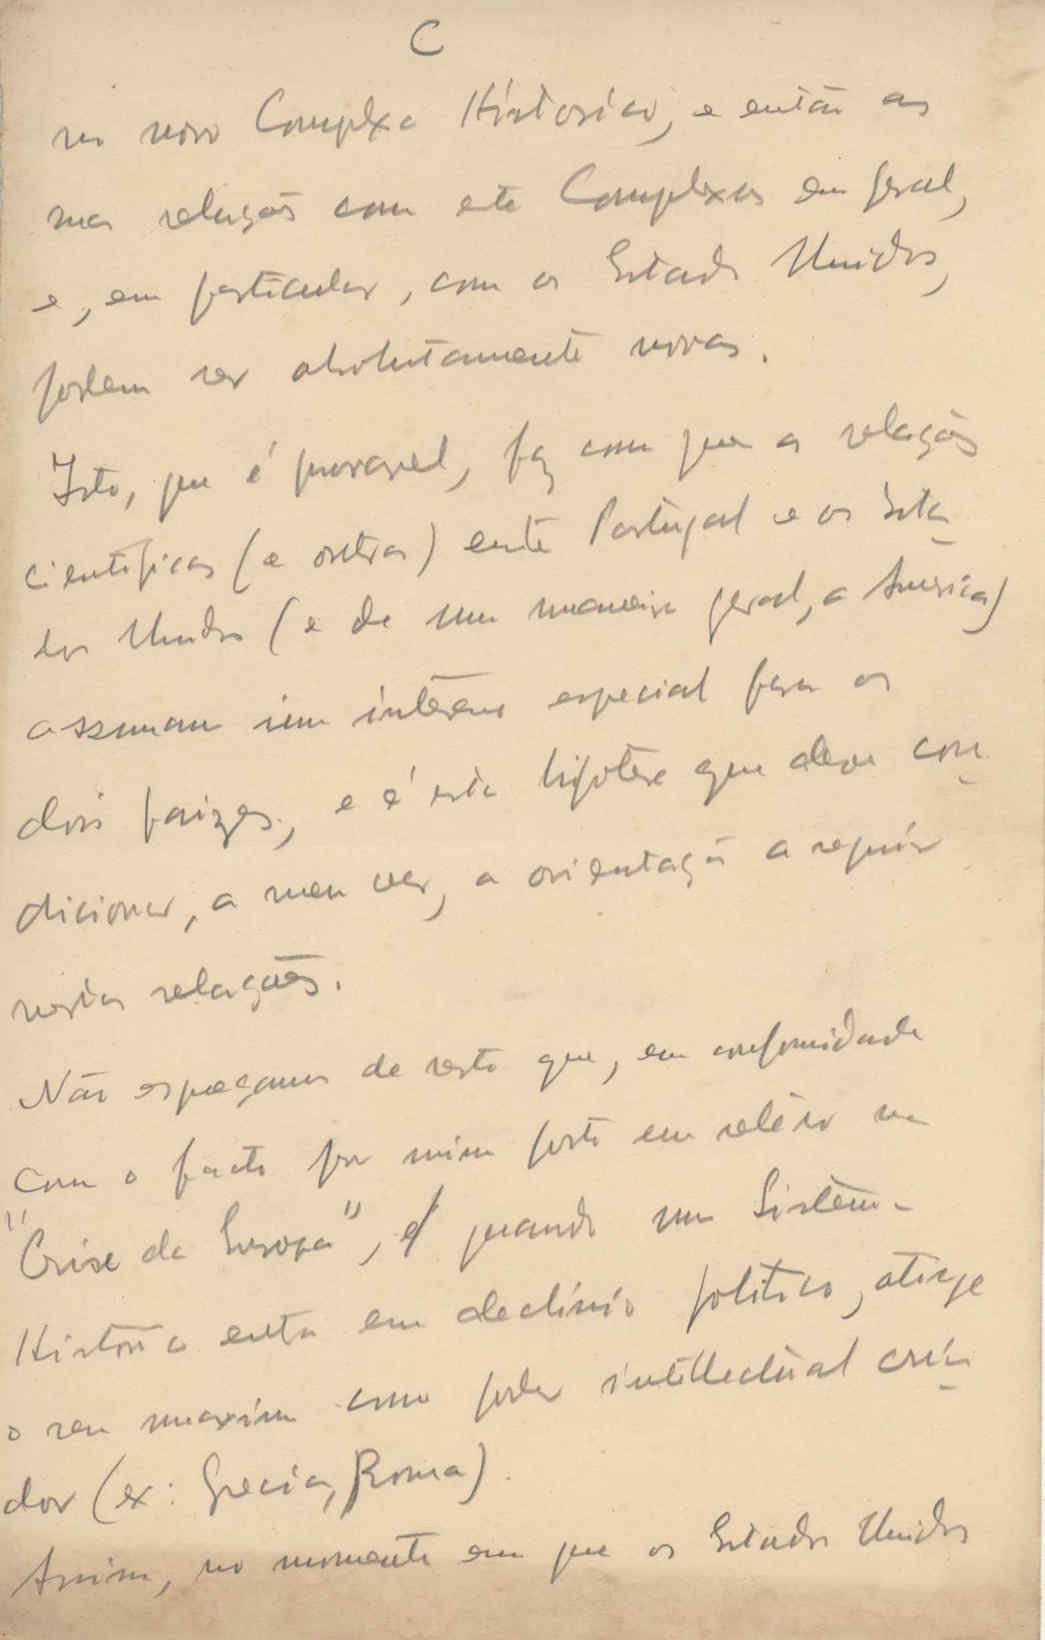 C
no novo Complexo Historico, e então as
suas relações com este Complexos em geral,
e, em particular, com os Estados Unidos,
podem ser absolutamente novas.
Isto, que é provavel, faz com que as relações
cientificas (e outras) entre Portugal e os Esta-
dos Unidos (e de uma maneira geral, a America)
assumam um interesse especial para os
dois paizes, e é esta hipotese que deve con-
dicionar, a meu ver, a orientação a seguir
nestas relações.
Não esqueçamos de resto que, em conformidade
com o facto por mim posto em relêvo na
"Crise da Europa", é quando um Sistema
Historico entra em declinio politico, atinge
o seu maximo como poder intellectual cria-
dor (ex: Grecia, Roma).
Assim, no momento em que os Estados Unidos